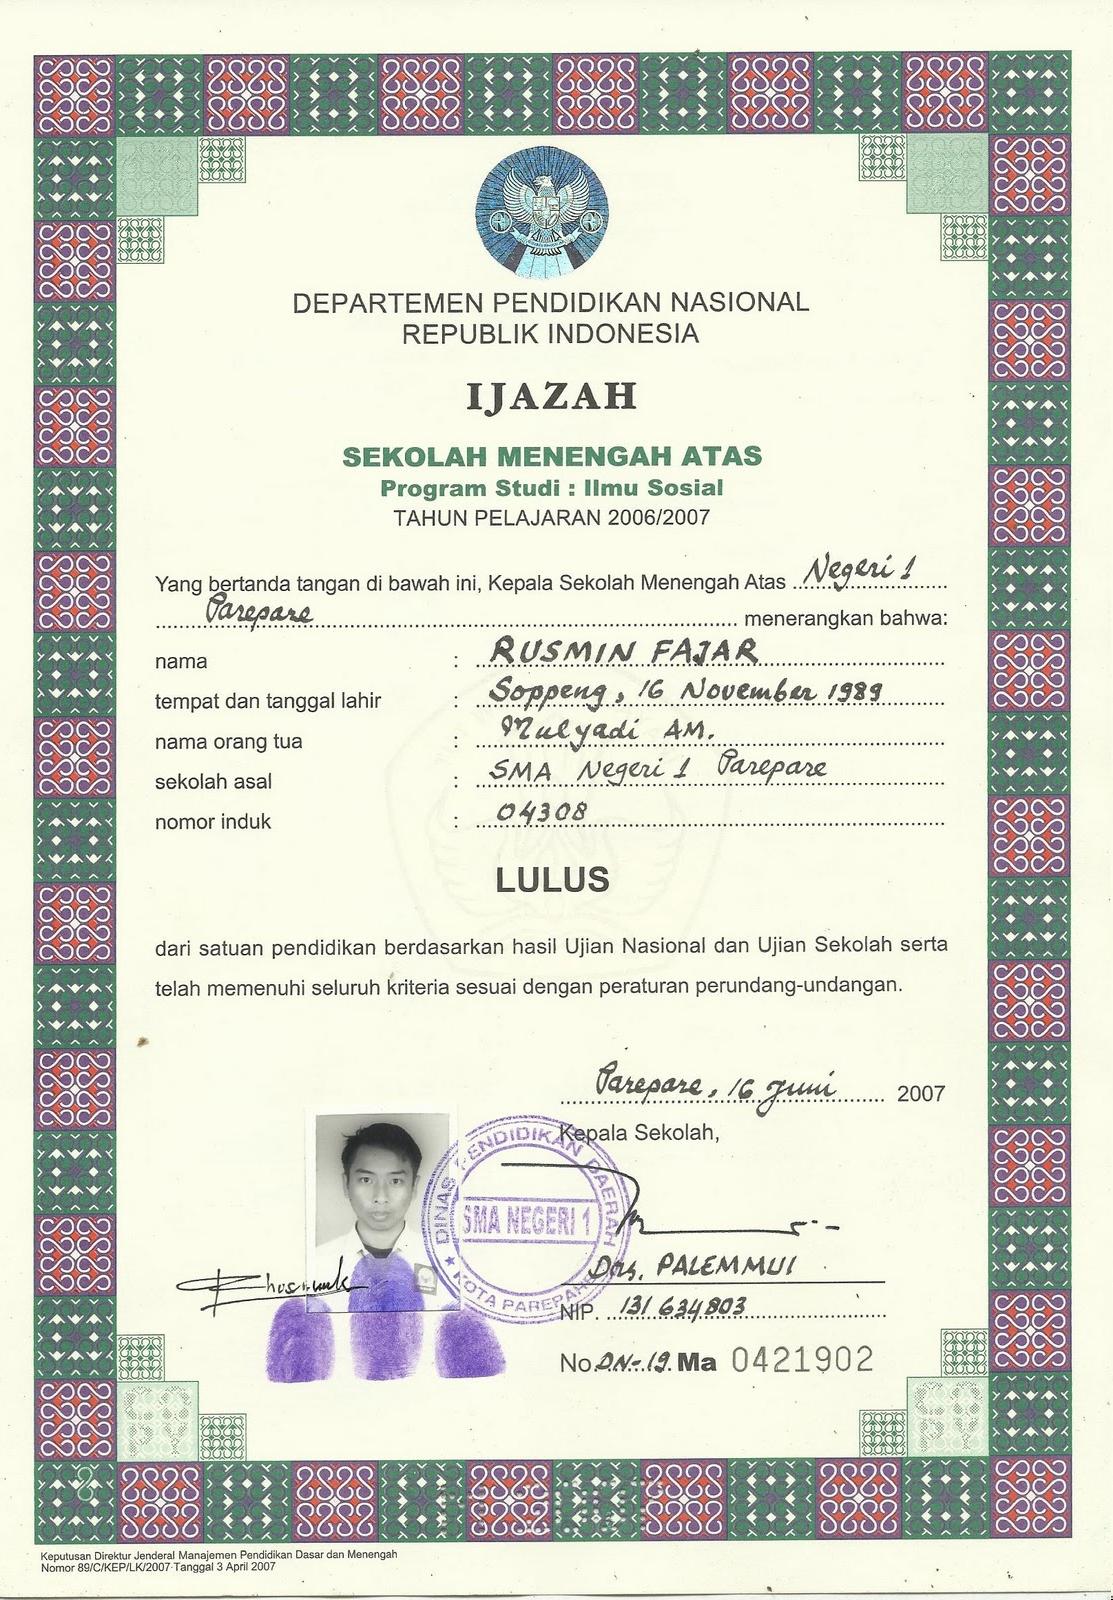 DEPARTEMEN PENDIDIKAN NASIONAL
REPUBLIK INDONESIA
IJAZAH
SEKOLAH MENENGAH ATAS
Program Studi : Ilmu Sosial
TAHUN PELAJARAN 2006/2007
Yang bertanda tangan di bawah ini, Kepala Sekolah Menengah Atas Negeri 1
Parepare menerangkan bahwa:
nama : RUSMIN FAJAR
tempat dan tanggal lahir : Soppeng, 16 November 1989
nama orang tua : Mulyadi AM.
sekolah asal : SMA Negeri 1 Parepare
nomor induk : 04308
LULUS
dari satuan pendidikan berdasarkan hasil Ujian Nasional dan Ujian Sekolah serta
telah memenuhi seluruh kriteria sesuai dengan peraturan perundang-undangan.
Parepare, 16 Juni 2007
Kepala Sekolah,
DINAS PENDIDIKAN DAERAH
SMA NEGERI 1
KOTA PAREPARE
Drs. PALEMMUI
NIP. 131 634 803
No. DN-19 Ma 0421902
COPY
COPY
Keputusan Direktur Jenderal Manajemen Pendidikan Dasar dan Menengah
Nomor 89/C/KEP/LK/2007 Tanggal 3 April 2007